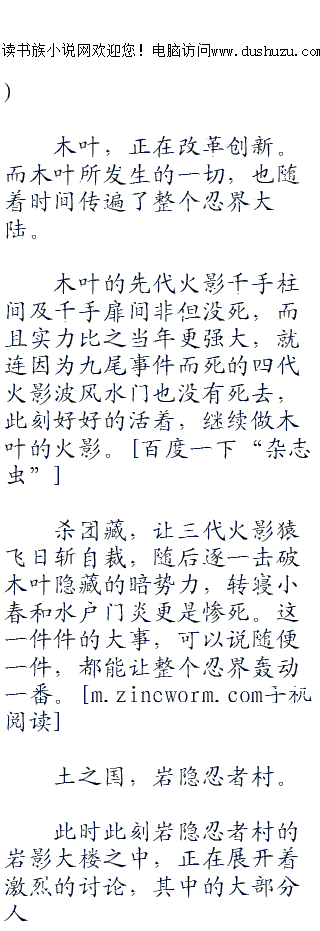 读书族小说网欢迎您！电脑访问www.dushuzu.com
)
木叶，正在改革创新。
而木叶所发生的一切，也随
着时间传遍了整个忍界大
陆。
木叶的先代火影千手柱
间及千手扉间非但没死，而
且实力比之当年更强大，就
连因为九尾事件而死的四代
火影波风水门也没有死去，
此刻好好的活着，继续做木
叶的火影。[百度一下“杂志
虫”]
杀团藏，让三代火影猿
飞日斩自裁，随后逐一击破
木叶隐藏的暗势力，转寝小
春和水户门炎更是惨死。这
一件件的大事，可以说随便
一件，都能让整个忍界轰动
一番。[m.zincworm.com手机
阅读]
土之国，岩隐忍者村。
此时此刻岩隐忍者村的
岩影大楼之中，正在展开着
激烈的讨论，其中的大部分
人